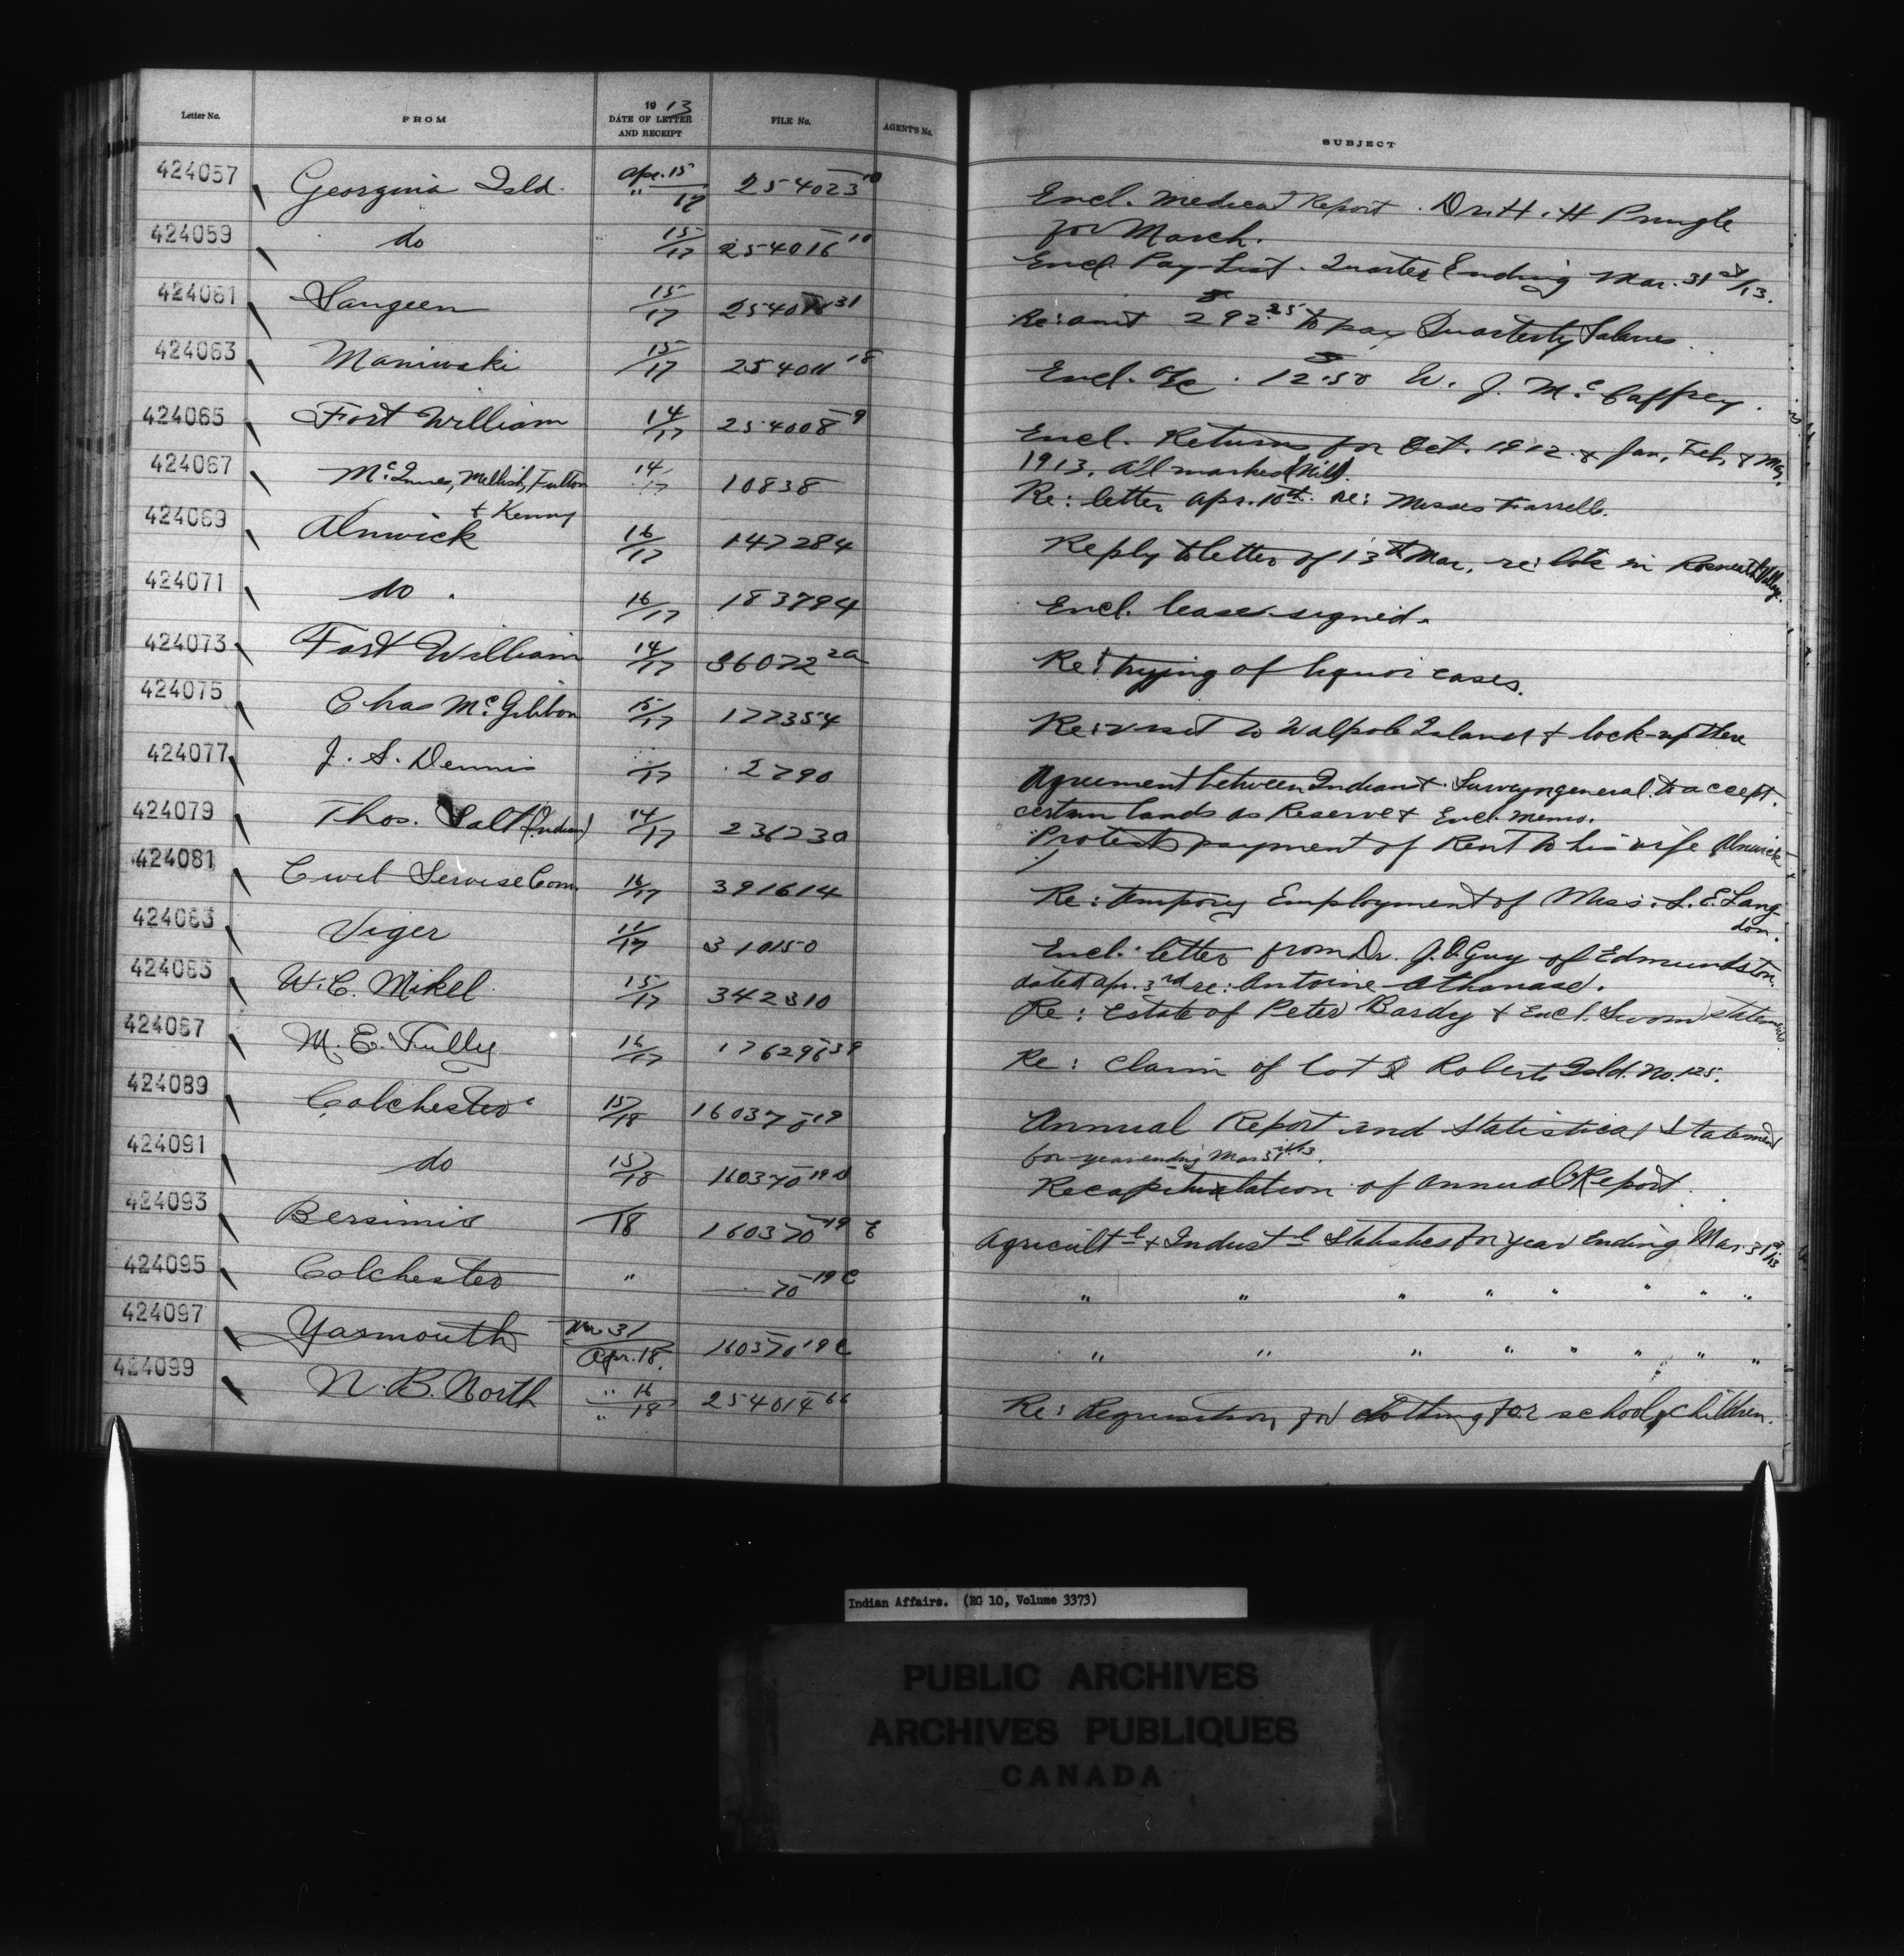 Letter No. FROM 1913 DATE OF LETTER AND RECEIPT FILE No. AGENT'S No. SUBJECT
424057 Georgina Isld. Apr. 15 / " 17 254023-10 Encl. Medical Report. Dr. H. H. Pringle
for March.
424059 do 15/17 254016-10 Encl. Pay-List. Quarter Ending Mar. 31st/13.
424061 Saugeen 15/17 254016-31 Re: amt $292.25 to pay Quarterly Salaries.
424063 Maniwaki 15/17 254011-18 Encl. a/c. $12.50 W. J. McCaffrey.
424065 Fort William 14/17 254008-9 Encl. Returns for Oct. 1912 & Jan, Feb, & Mar,
1913. All marked (Nil).
424067 McInnes, Mellish, Fulton 14/17 10838 Re: letter Apr. 10th. re: Messrs Farrell.
& Kenny
424069 Alnwick 16/17 147284 Reply to letter of 13th Mar, re: lots in Roseneath Valley.
424071 do. 16/17 183794 Encl. lease signed.
424073 Fort William 14/17 36072-2a Re: trying of liquor cases.
424075 Chas McGibbon 15/17 177354 Re: visit to Walpole Island & lock-up there
424077 J. S. Dennis /17 2790 Agreement between Indians & Surveyor general to accept
certain lands as Reserve & Encl. memo.
424079 Thos. Salt (Indian) 14/17 236730 Protests payment of Rent to his wife Alnwick
424081 Civil Servise Com. 16/17 391614 Re: tempory Employment of Miss. L. E. Lang-
don.
424083 Viger 11/17 310150 Encl. letter from Dr. J. O. Guy of Edmundston,
dated Apr. 3rd re: Antoine Athanase.
424085 W. C. Mikel 15/17 342310 Re: Estate of Peter Bardy & Encl. Sworn statement.
424087 M. E. Tully 16/17 176296-39 Re: Claim of lot Roberts Isld. No. 125.
424089 Colchester 15/18 160370-19 Annual Report and Statistical Statement
for year ending Mar 31st/13.
424091 do 15/18 160370-19 Recapitulation of Annual Report.
424093 Bersimis /18 160370-19 C Agricult-l & Indust-l Statistics for year Ending Mar. 31st/13
424095 Colchester " 70-19 C " " " " " " " "
424097 Yarmouth Mar 31 / Apr. 18. 160370-19 C " " " " " " " "
424099 N. B. North " 16 / " 18 254014-66 Re: Requisition for clothing for school children.
Indian Affairs. (RG 10, Volume 3373)
PUBLIC ARCHIVES
ARCHIVES PUBLIQUES
CANADA